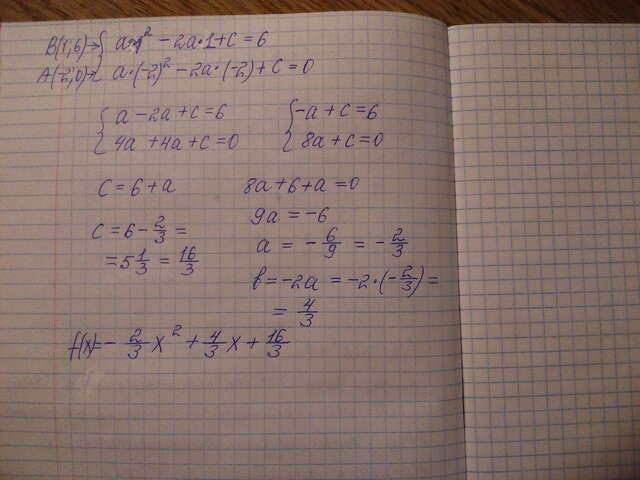 B(1;6)→{ a·1² − 2a·1 + c = 6
A(−2;0)→{ a·(−2)² − 2a·(−2) + c = 0
{ a − 2a + c = 6
4a + 4a + c = 0
{ −a + c = 6
8a + c = 0
c = 6 + a
8a + 6 + a = 0
9a = −6
c = 6 − 2/3 =
= 5 1/3 = 16/3
a = − 6/9 = − 2/3
b = −2a = −2·(− 2/3) =
= 4/3
f(x) = − 2/3 x² + 4/3 x + 16/3